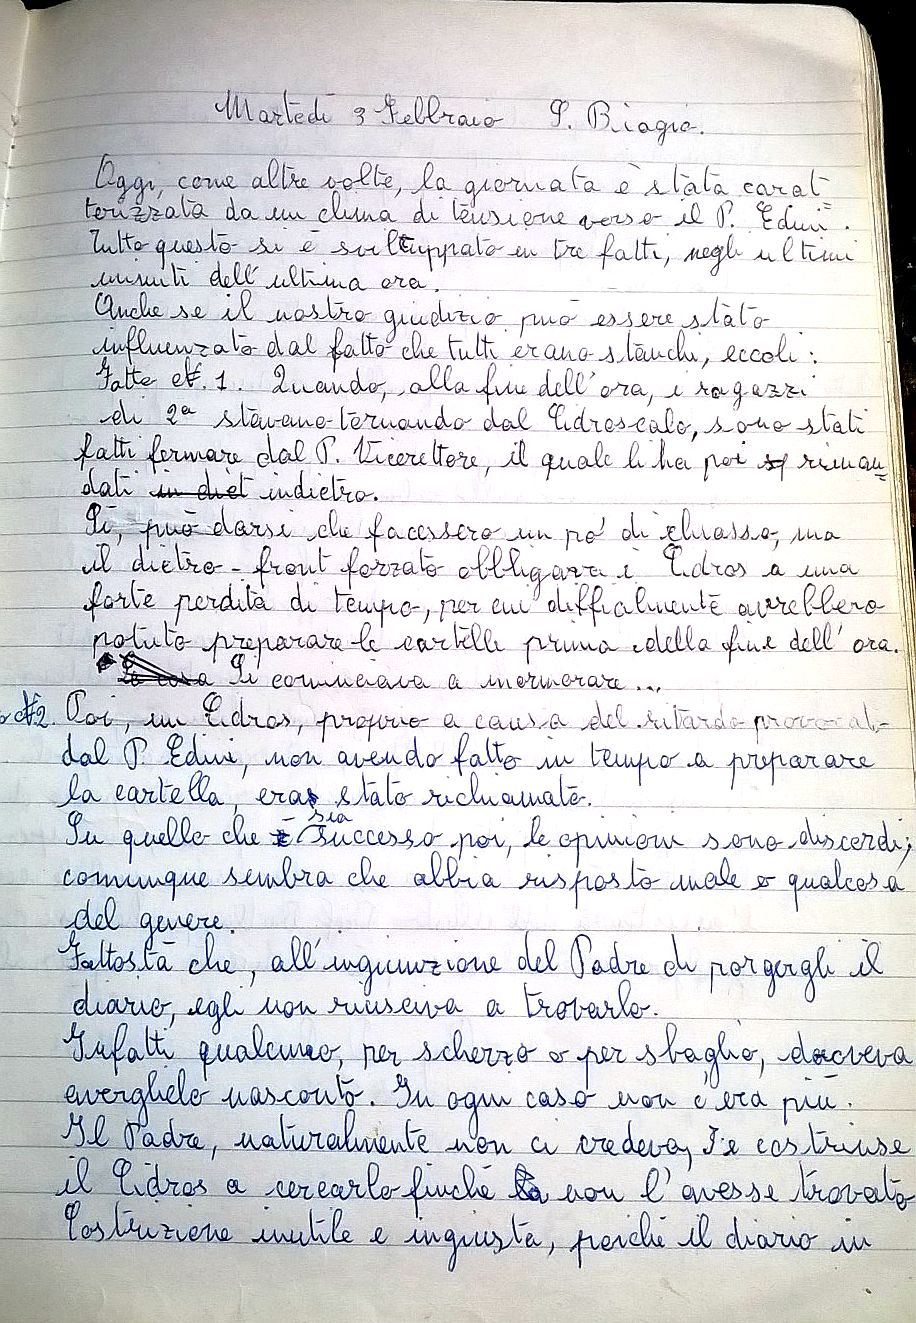 Martedì 3 Febbraio S. Biagio.
Oggi, come altre volte, la giornata è stata carat
terizzata da un clima di tensione verso il P. Edini.
Tutto questo si è sviluppato in tre fatti, negli ultimi
minuti dell'ultima ora.
Anche se il nostro giudizio può essere stato
influenzato dal fatto che tutti erano stanchi, eccoli:
Fatto N. 1. Quando, alla fine dell'ora, i ragazzi
di 2ª stavano tornando dal Cidroscalo, sono stati
fatti fermare dal P. Vicerettore, il quale li ha poi riman=
dati in diet indietro.
Sì, può darsi che facessero un pò di chiasso, ma
il dietro-front forzato obbligava i Cidros a una
forte perdita di tempo, per cui difficilmente avrebbero
potuto preparare le cartelle prima della fine dell'ora.
La cosa Si cominciava a mormorare...
N2. Poi, un Cidros, proprio a causa del ritardo provocat-
dal P. Edini, non avendo fatto in tempo a preparare
la cartella, era stato richiamato.
Su quello che è sia successo poi, le opinioni sono discordi;
comunque sembra che abbia risposto male o qualcosa
del genere.
Fattostà che, all'ingiunzione del Padre di porgergli il
diario, egli non riusciva a trovarlo.
Infatti qualcuno, per scherzo o per sbaglio, doveva
averglielo nascosto. In ogni caso non c'era più.
Il Padre, naturalmente non ci credeva, e costrinse
il Cidros a cercarlo finché non l'avesse trovato
Costrizione inutile e ingiusta, perché il diario in